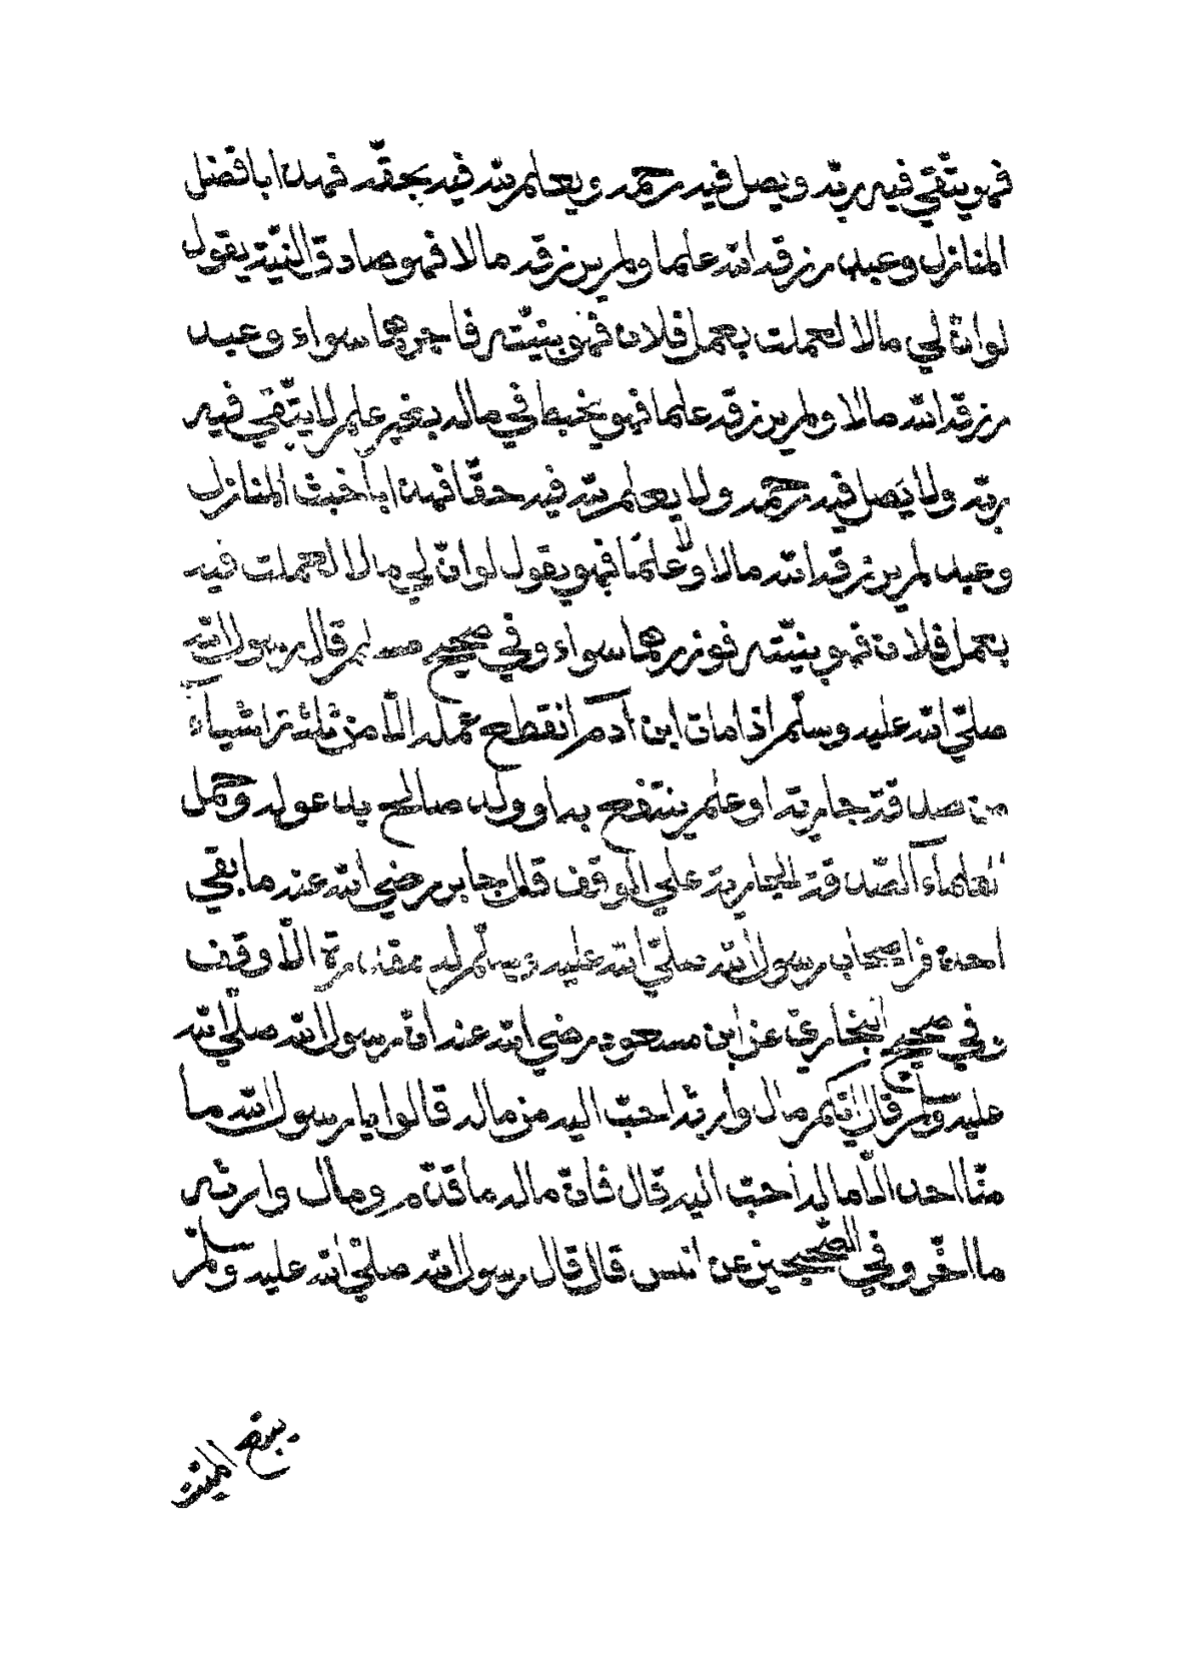 فهو يتّقي فيه ربّه ويصل فيه رحمه ويعلم لله فيه بحقّه فهذا بافضل
المنازل وعبد رزقه الله علما ولم يرزقه مالا فهو صادق النيّة يقول
لو انّ لي مالا لعملت بعمل فلان فهو بنيّته فاجرهما سواء وعبد
رزقه الله مالا ولم يرزقه علما فهو يخبط في ماله بغير علم لا يتّقي فيه
ربّه ولا يَصل فيه رحمه ولا يعلم لله فيه حقّا فهذا باخبث المنازل
وعبد لم يرزقه الله مالا ولا علمًا فهو يقول لو انّ لي مالا لعملت فيه
بعمل فلان فهو بنيّته فوزرهما سواء وفي صحيح مسلم قال رسول الله
صلّي الله عليه وسلّم اذا مات ابن آدم انقطع عمله الّا من ثلثة اشيآء
من صدقة جارية او علم ينتفع به او ولد صالح يدعو له وحمل
العلمآء الصّدقة الجارية علي الوقف قال جابر رضي الله عنه ما بقي
احد من اصحاب رسول الله صلّي الله عليه وسلّم له مقدرة الّا وقف
وفي صحيح البخاريّ عن ابن مسعود رضي الله عنه انّ رسول الله صلّي الله
عليه وسلّم قال ايّكم مال وارثه احبّ اليه من ماله قالوا يا رسول الله ما
منّا احد الّا ماله احبّ اليه قال فانّ ماله ما قدّم ومال وارثه
ما اخّر وفي الصّحيحين عن انس قال قال رسول الله صلّي الله عليه وسلّم
يتبع
الميّت